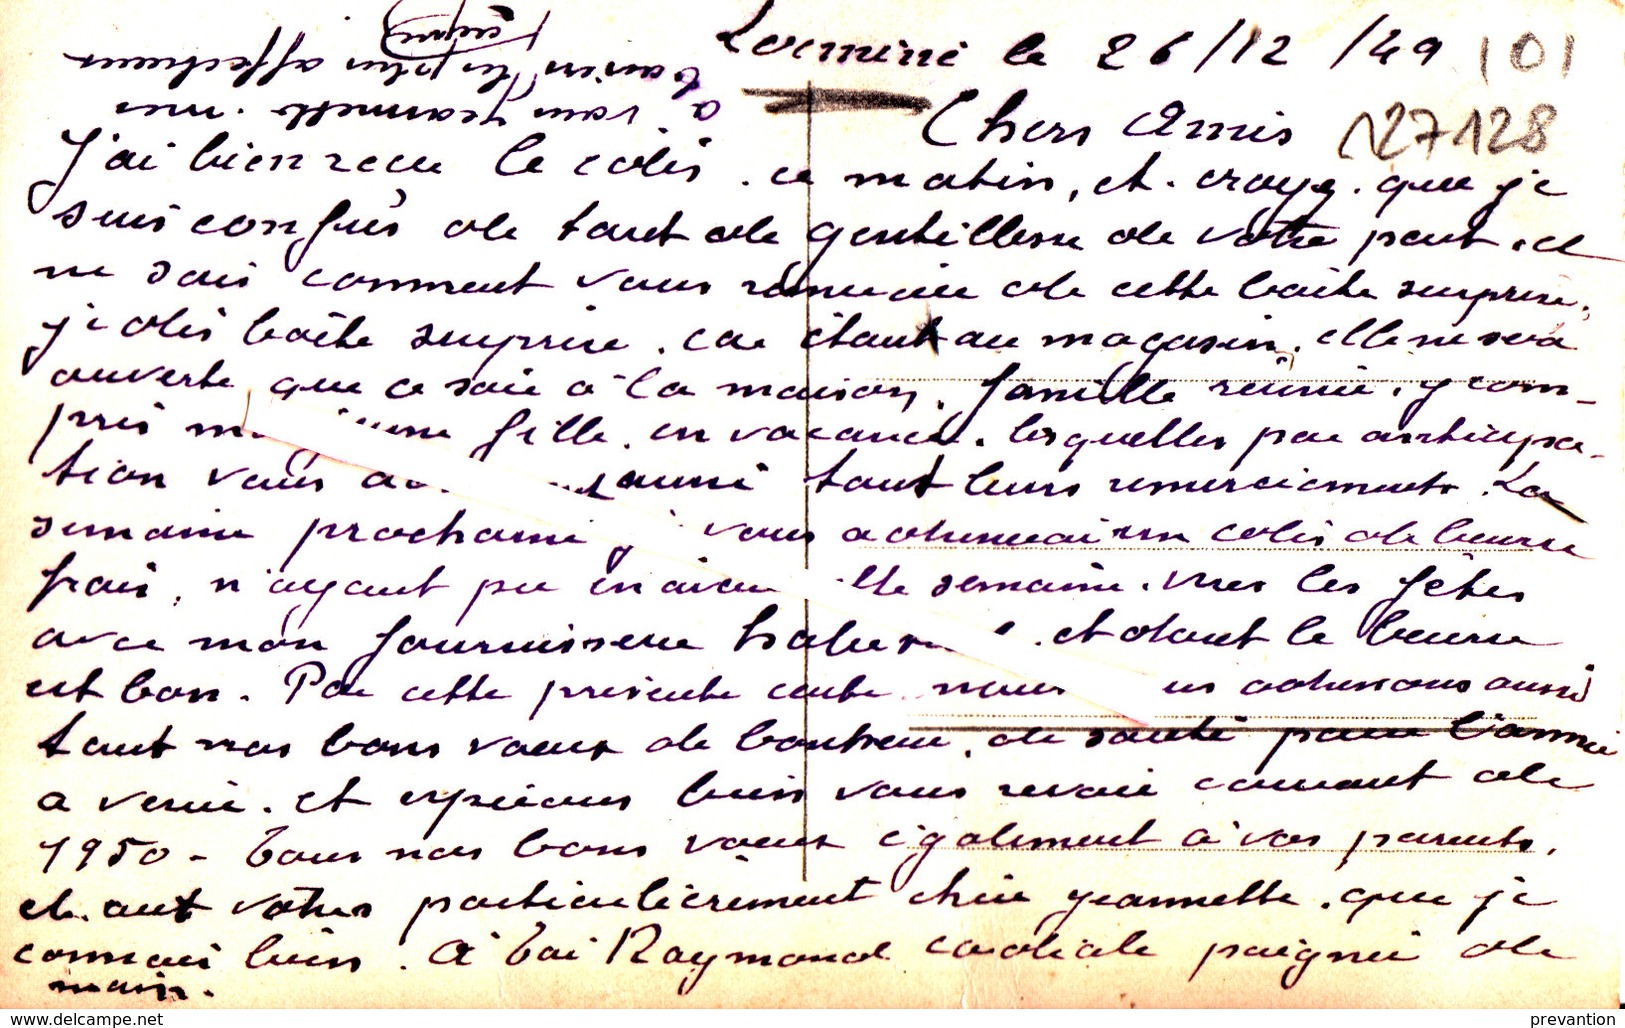 Locminé le 26/12/49 101
Chers Amis 127128
J'ai bien recu le colis. ce matin, et. croyez. que je
suis confus de tant de gentillesse de votre part. et
ne sais comment vous remercier de cette boîte surprise.
je dis boîte surprise. car étant au magasin. elle ne sera
ouverte que ce soir à la maison. famille réunie. y com-
pris ma fille. en vacances. lesquelles par anticipa-
tion vous aussi tout leurs remerciements. La
semaine prochaine j vous adresserai un colis de beurre
frais, n'ayant pu en avoir tte semaine. vues les fêtes
avec mon fournisseur habituel et dont le beurre
est bon. Par cette présente carte nous us adressons aussi
tout nos bons voeux de bonheur, de santé pour l'année
a venir. et espérons bien vous revoir courant de
1950 - Tous nos bons voeux également à vos parents.
et. aux votres particulièrement chère Jeannette. que je
connais bien. A toi Raymond cordiale poignée de
main.
à vous Jeannette. mes
baisers les plus affectueux